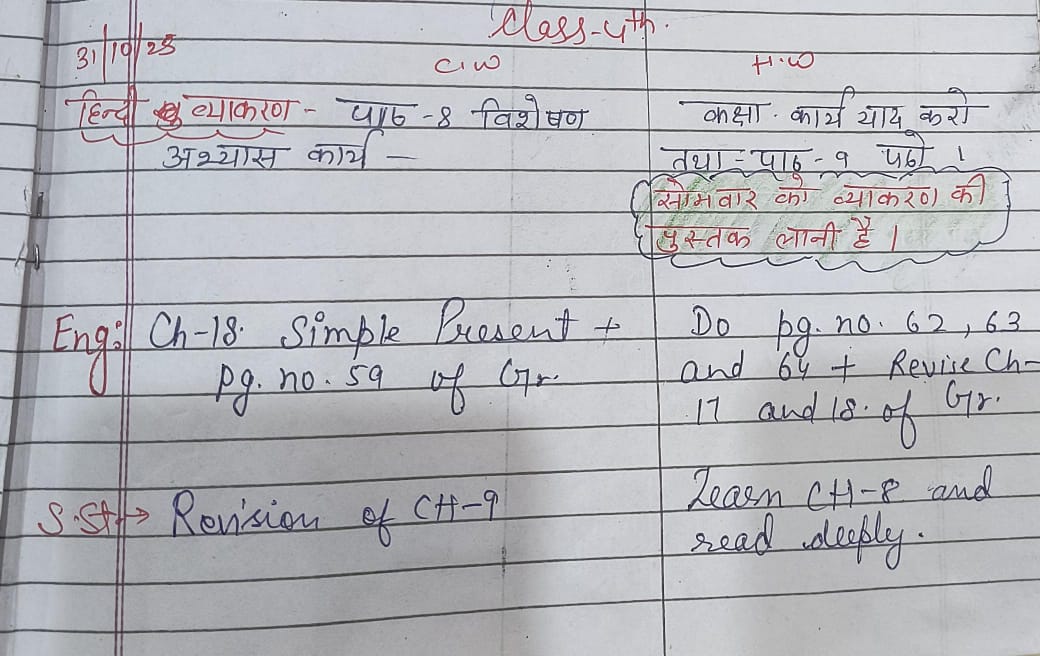 Class-4th.
31/10/25
C.W
H.W
हिन्दी व्याकरण - पाठ -8 विशेषण
अभ्यास कार्य —
कक्षा . कार्य याद करो
तथा - पाठ - 9 पढो ।
सोमवार को व्याकरण की
पुस्तक लानी है ।
Eng: Ch-18. Simple Present +
pg. no. 59 of Gr.
Do pg. no. 62, 63
and 64 + Revise Ch-
17 and 18. of Gr.
S.St → Revision of CH-9
Learn CH-8 and
read deeply.